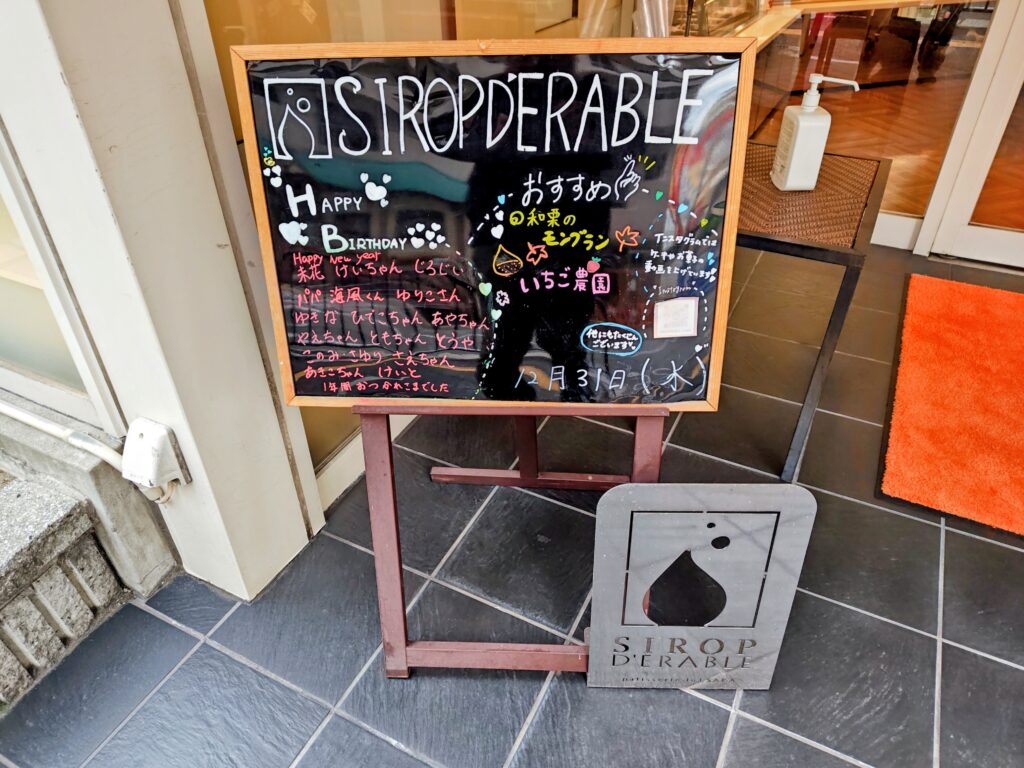 SIROP D'ERABLE
HAPPY
BIRTHDAY
Happy New year
けいちゃん じろじい
パパ 海風くん ゆりこさん
ゆきな ひでこちゃん あやちゃん
やえちゃん ともちゃん とうや
このみ さゆり さえちゃん
あきこちゃん けいと
1年間 おつかれさまでした
おすすめ
和栗の
モンブラン
いちご農園
他にもたくさん
ございます
インスタグラムでは
ケーキやお菓子の
動画を上げています!
Instagram
12月31日(水)
SIROP
D'ERABLE